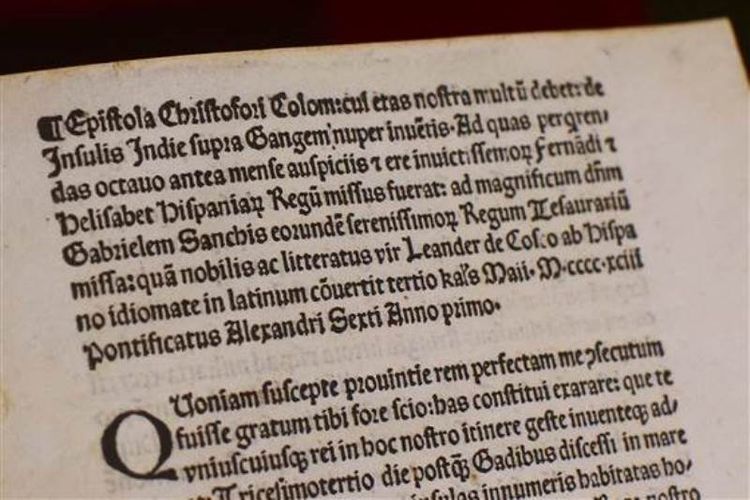 ¶ Epistola Christofori Colom: cui etas nostra multū debet: de
Insulis Indie supra Gangem nuper inuētis. Ad quas perqren/
das octauo antea mense auspiciis ⁊ ere inuictissemoꝝ Fernādi ⁊
Helisabet Hispaniaꝝ Regū missus fuerat: ad magnificum dn̄m
Gabrielem Sanchis eorundē serenissimoꝝ Regum Tesaurariū
missa: quā nobilis ac litteratus vir Leander de Cosco ab Hispa
no idiomate in latinum cōuertit tertio kal's Maii. M.cccc.xciii
Pontificatus Alexandri Sexti Anno primo.
Quoniam suscepte prouintie rem perfectam me ꝯsecutum
fuisse gratum tibi fore scio: has constitui exarare: que te
vniuscuiusqꝫ rei in hoc nostro itinere geste inuenteqꝫ ad/
Tricesimotertio die postqꝫ̄ Gadibus discessi in mare
insulas innumeris habitatas ho/
nostro